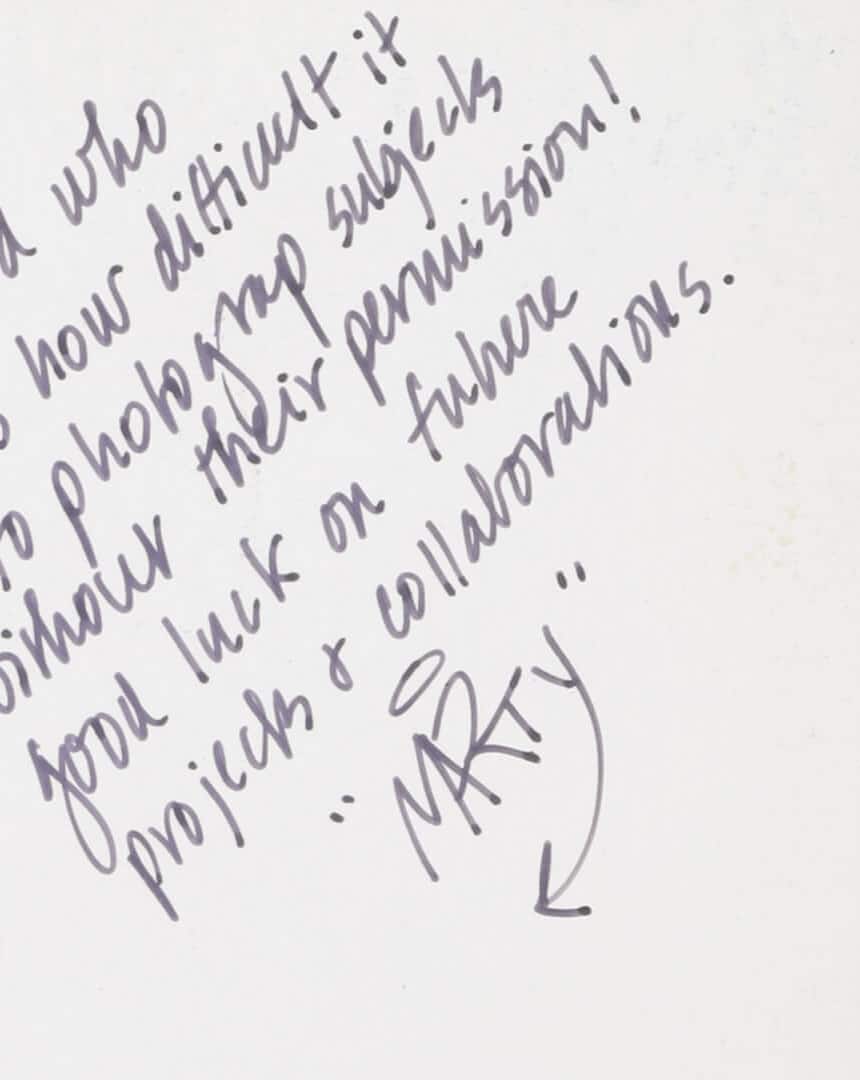 who
how difficult it
to photograp subjects
without their permission!
good luck on future
projects & collaborations.
"MARTY"